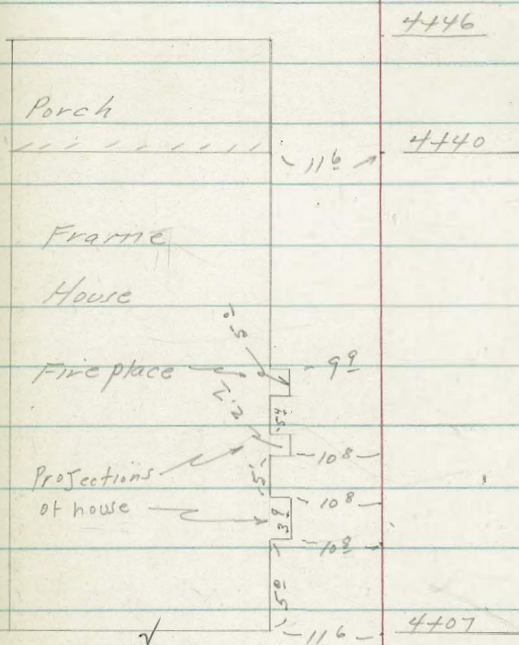 4+46
Porch
11 6
4+40
Frame
House
5 0
Fire place
9 9
2.2
4 5
10 8
Projections
of house
5
10 8
3 9
10 9
5 0
11 6
4+07